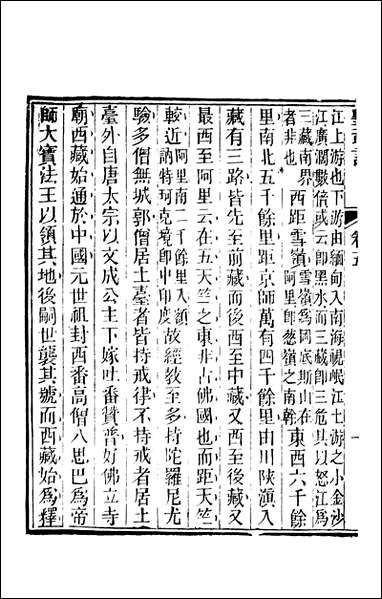 江上游也下游由緬甸入南海視岷江上游之小金沙
江廣濶數倍或云卽黑水而三藏卽三危其以怒江爲
三藏南界
者非也
西距雪嶺
雪嶺爲岡底斯山在
阿里卽葱嶺之南幹
東西六千餘
里南北五千餘里距京師萬有四千餘里由川陝滇入
藏有三路皆先至前藏而後西至中藏又西至後藏又
最西至阿里云在五天竺之東非古佛國也而距天竺
較近
阿里南二千餘里入額
訥特珂克境卽中印度
故經教至多持陀羅尼尤
驗多僧無城郭僧居土臺者皆持戒律不持戒者居土
臺外自唐太宗以文成公主下嫁吐番贊普好佛立寺
廟西藏始通於中國元世祖封西番高僧八思巴爲帝
師大寶法王以領其地後嗣世襲其號而西藏始爲釋
卷五